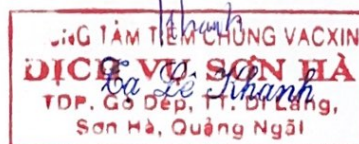 Khanh
TÂM TIÊM CHỦNG VACXIN
DỊCH VỤ SƠN HÀ
Lê Khanh
TDP. Gò Dép, TT. Di Lăng,
Sơn Hà, Quảng Ngãi